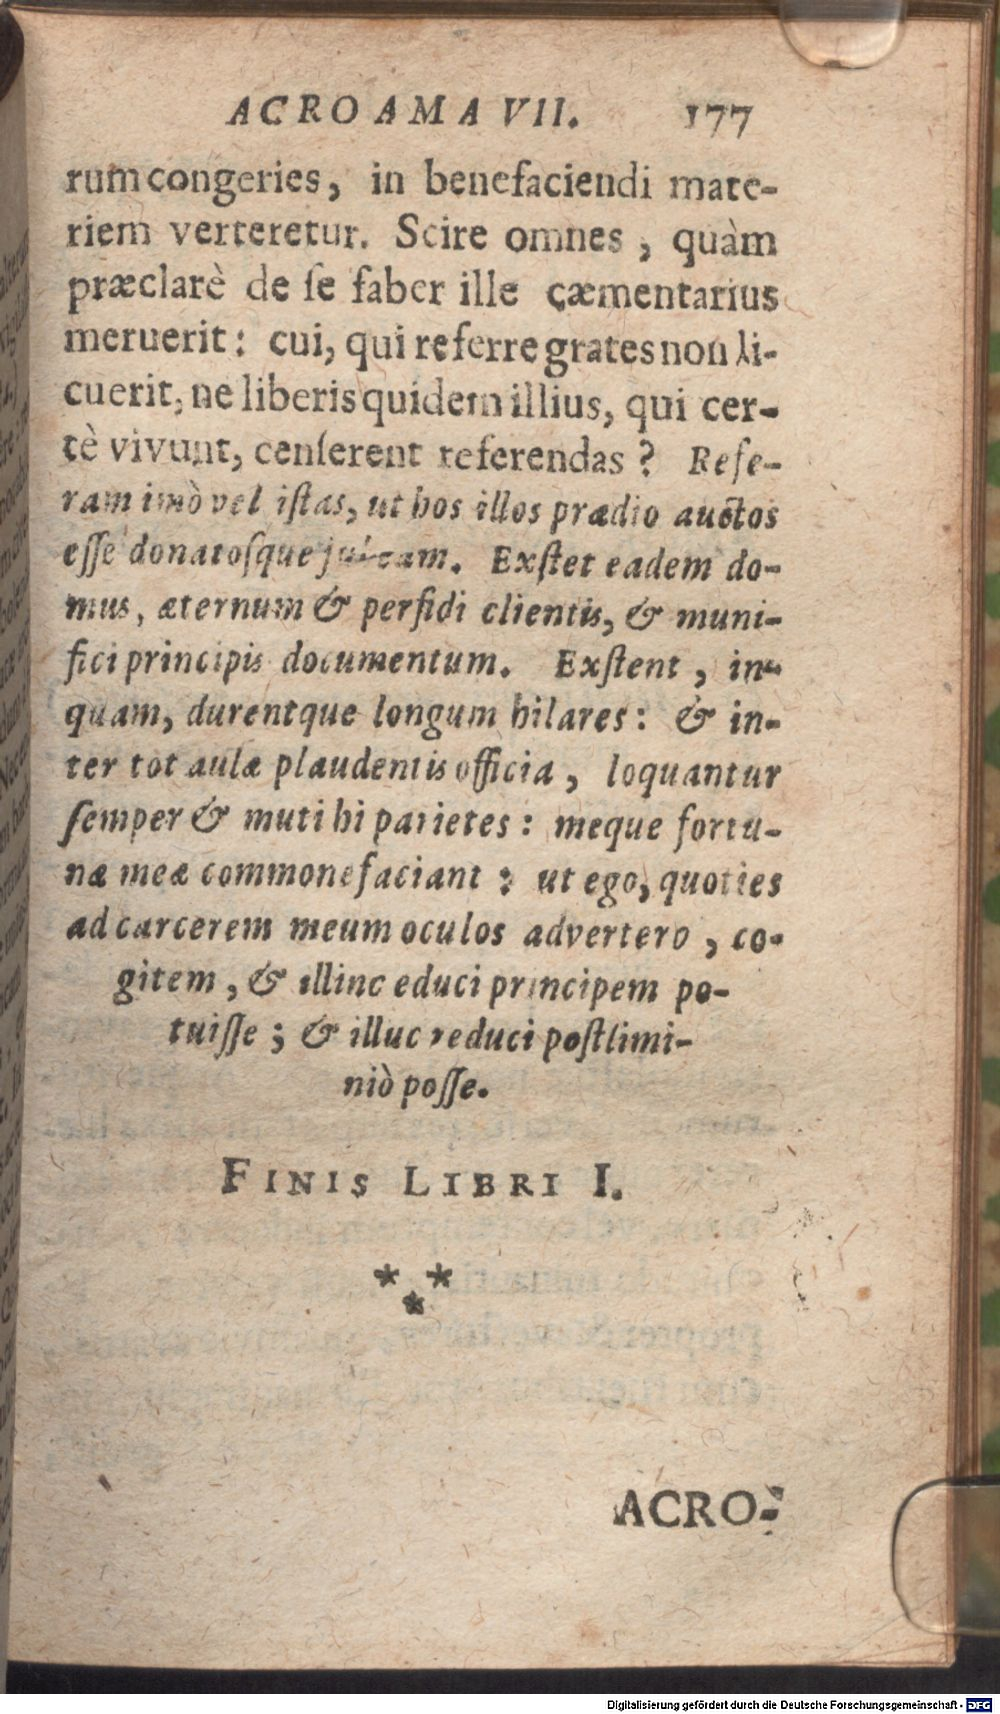 ACROAMA VII. 177
rum congeries, in benefaciendi mate-
riem verteretur. Scire omnes, quàm
præclarè de se faber ille cæmentarius
meruerit: cui, qui referre grates non li-
cuerit, ne liberis quidem illius, qui cer-
tè vivunt, censerent referendas? Refe-
ram imò vel istas, ut hos illos prædio auctos
esse donatosque jubeam. Exstet eadem do-
mus, æternum & perfidi clientis, & muni-
fici principis documentum. Exstent, in-
quam, durentque longum hilares: & in-
ter tot aulæ plaudentis officia, loquantur
semper & muti hi parietes: meque fortu-
næ meæ commonefaciant: ut ego, quoties
ad carcerem meum oculos advertero, co-
gitem, & illinc educi principem po-
tuisse; & illuc reduci postlimi-
niò posse.
FINIS LIBRI I.
* * *
ACRO-
Digitalisierung gefördert durch die Deutsche Forschungsgemeinschaft - DFG